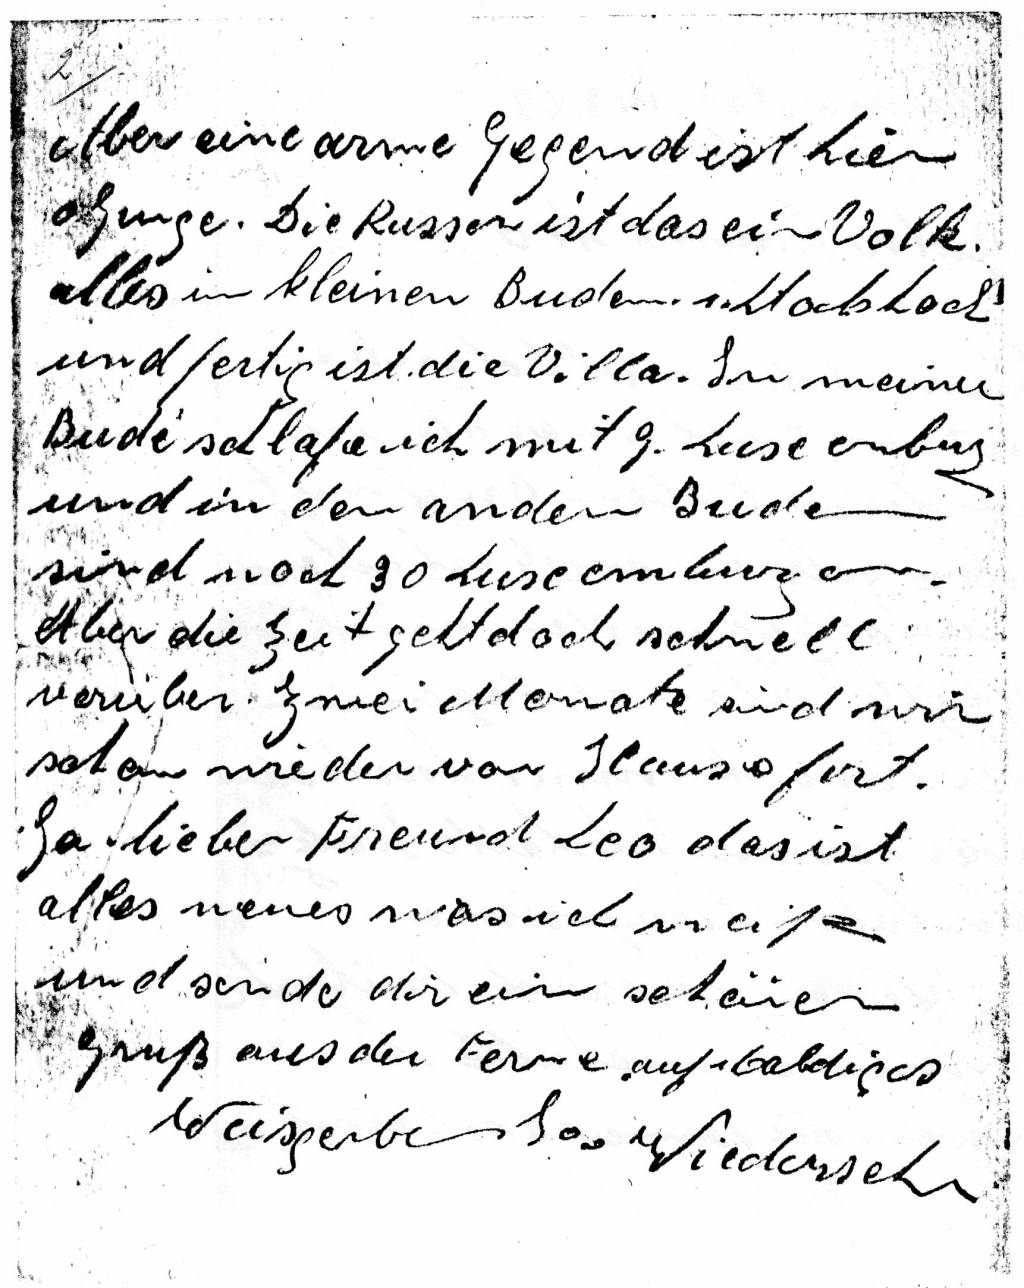 2/
Aber eine arme Gegend ist hier
o Junge. Die Russen ist das ein Volk.
alles in kleinen Buden. 1. Stock hoch
und fertig ist die Villa. In meiner
Bude schlafe ich mit 9. Luxemburg
und in den andern Buden
sind noch 30 Luxemburger.
Aber die Zeit geht doch schnell
vorüber. Zwei Monate sind wir
schon wieder von Hause fort.
Ja lieber Freund Leo das ist
alles neues was ich weiß
und sende dir ein schönen
Gruß aus der Ferne auf baldiges
Weisgerber Wiedersehn